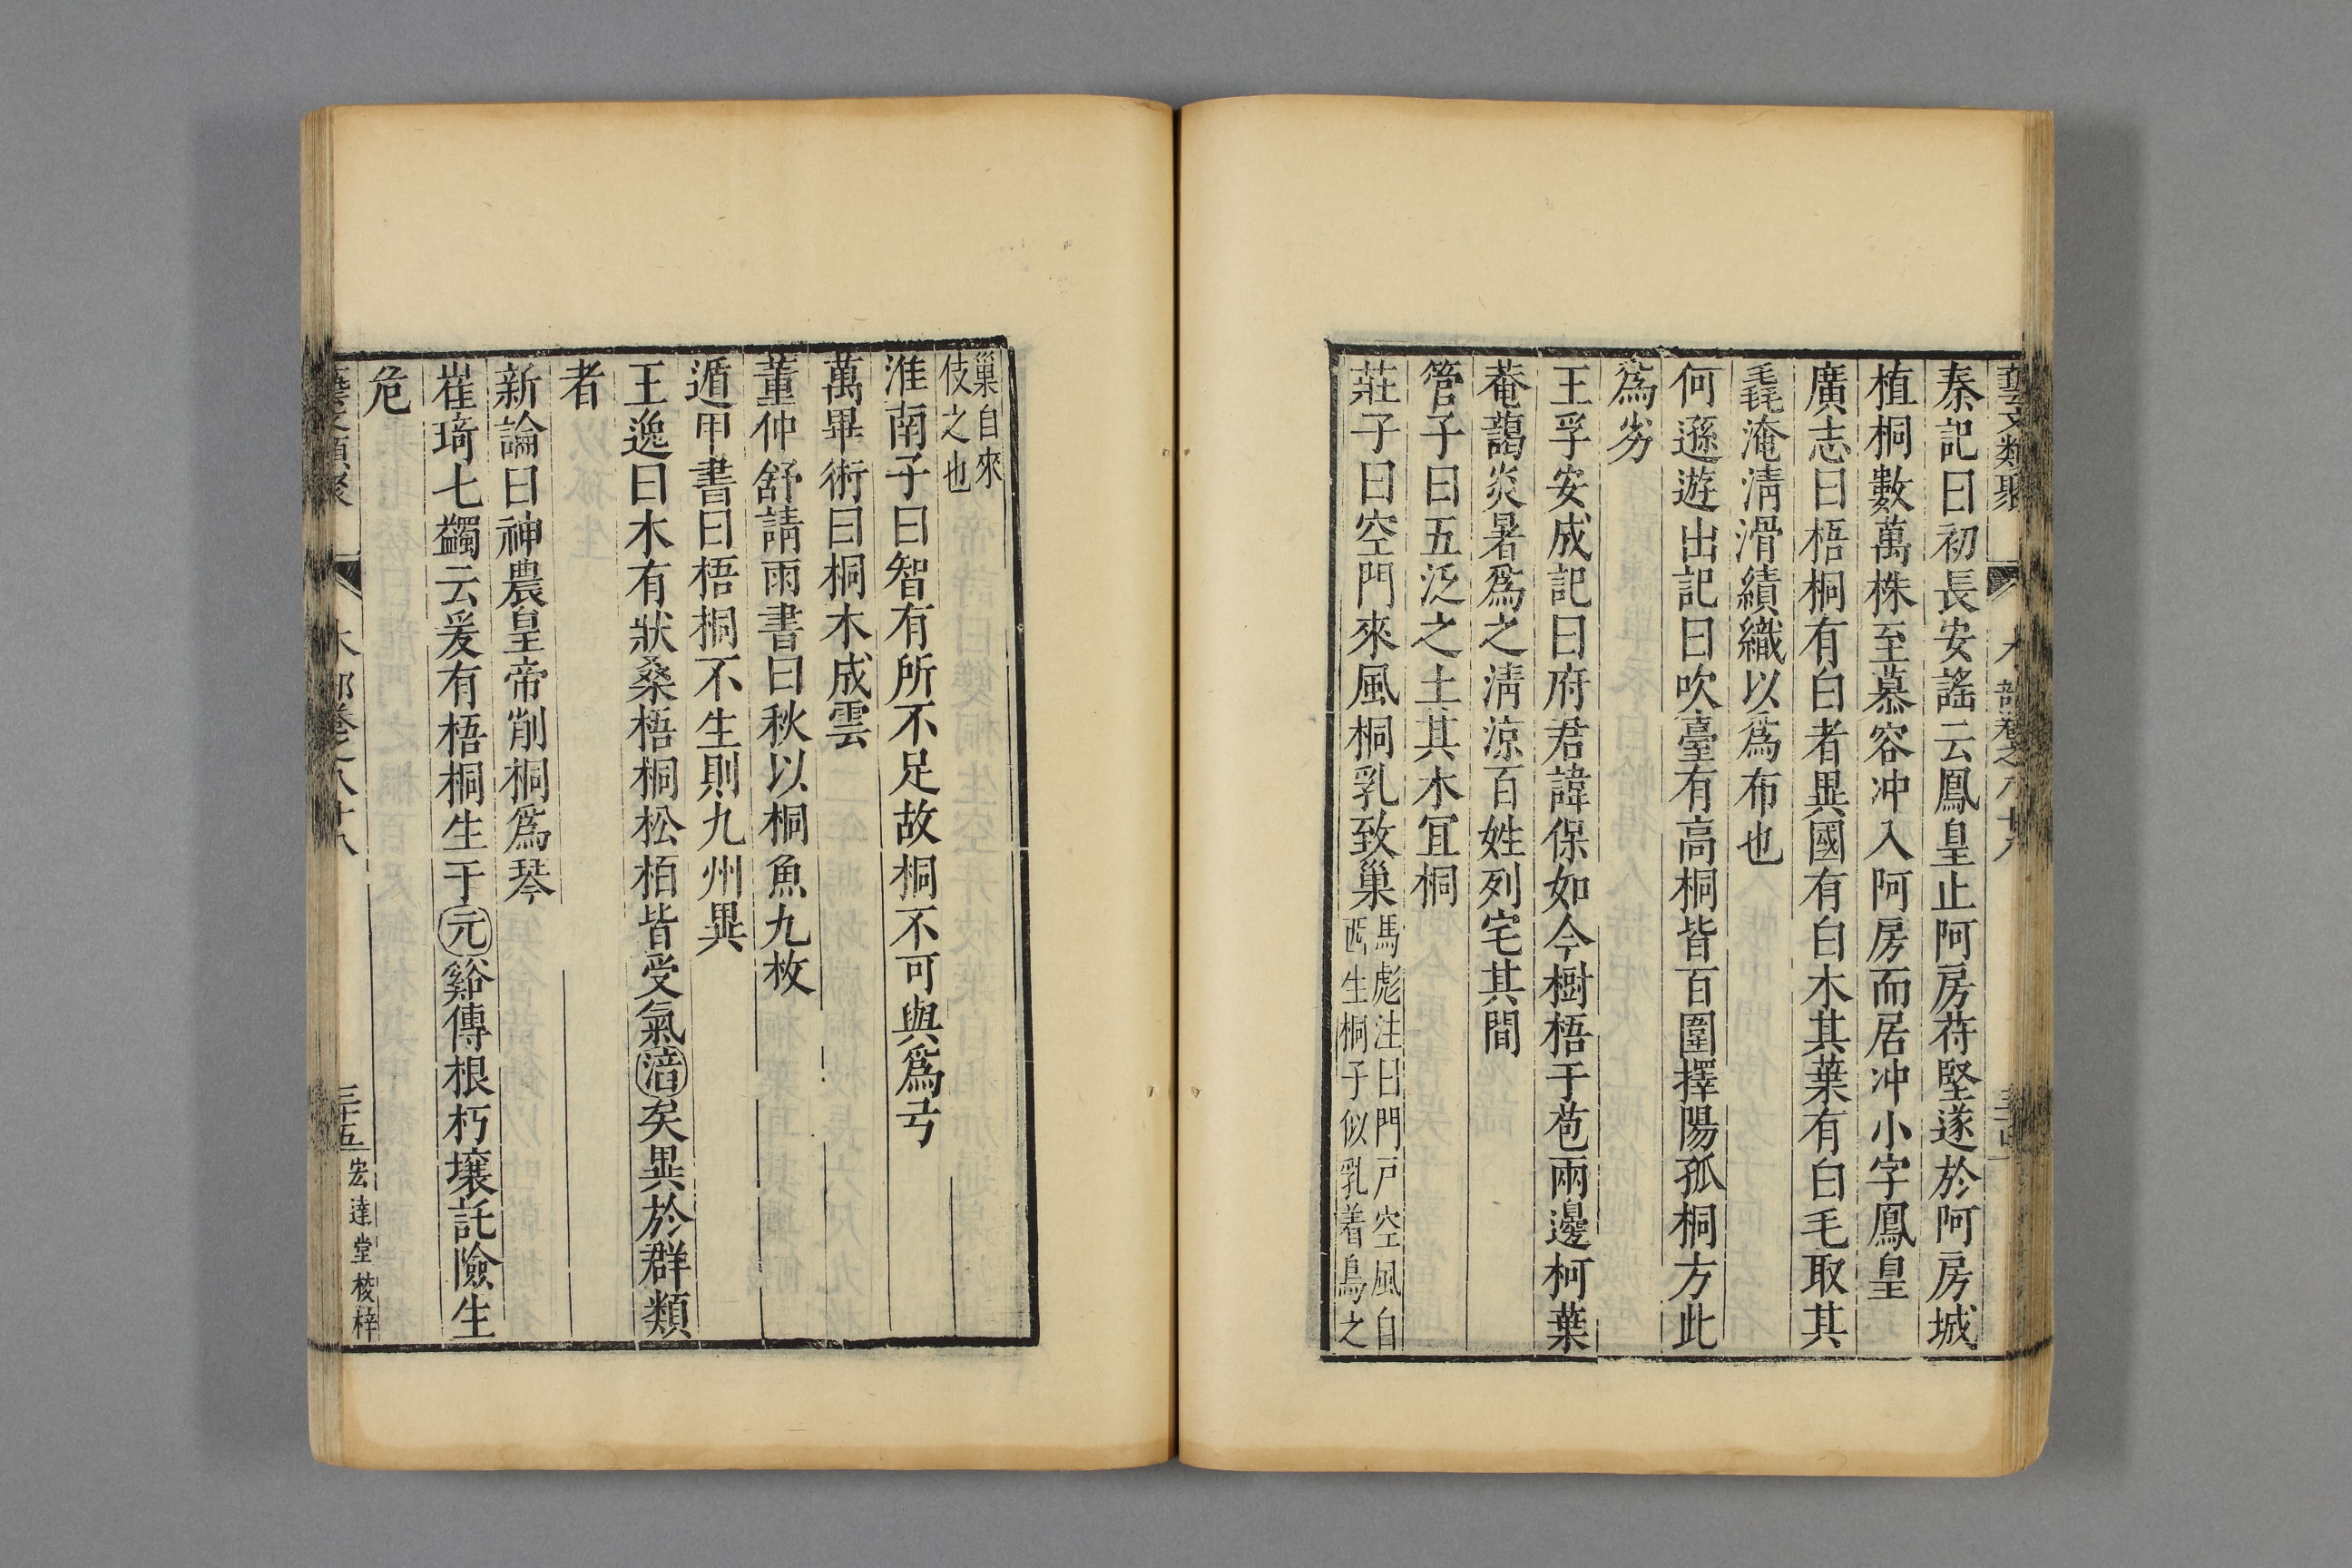 藝文類聚 木部卷之八十八
秦記曰初長安謠云鳳皇止阿房苻堅遂於阿房城
植桐數萬株至慕容冲入阿房而居冲小字鳳皇
廣志曰梧桐有白者異國有白木其葉有白毛取其
毳淹漬滑績織以爲布也
何遜遊出記曰吹臺有高桐皆百圍擇陽孤桐方此
爲劣
王孚安成記曰府君諱保如今樹梧于苞兩邊柯葉
菴藹炎暑爲之淸涼百姓列宅其間
管子曰五泛之土其木宜桐
莊子曰空門來風桐乳致巢
馬彪注曰門戸空風自
生桐子似乳着鳥之
巢自來
伎之也
淮南子曰智有所不足故桐不可與爲弓
萬畢術曰桐木成雲
董仲舒請雨書曰秋以桐魚九枚
遁甲書曰梧桐不生則九州異
王逸曰木有狀桑梧桐松栢皆受氣湇矣異於群類
者
新論曰神農皇帝削桐爲琴
崔琦七蠲云爰有梧桐生于元谿傳根朽壤託險生
危
藝文類聚 木部卷之八十八 三十五
宏達堂校梓